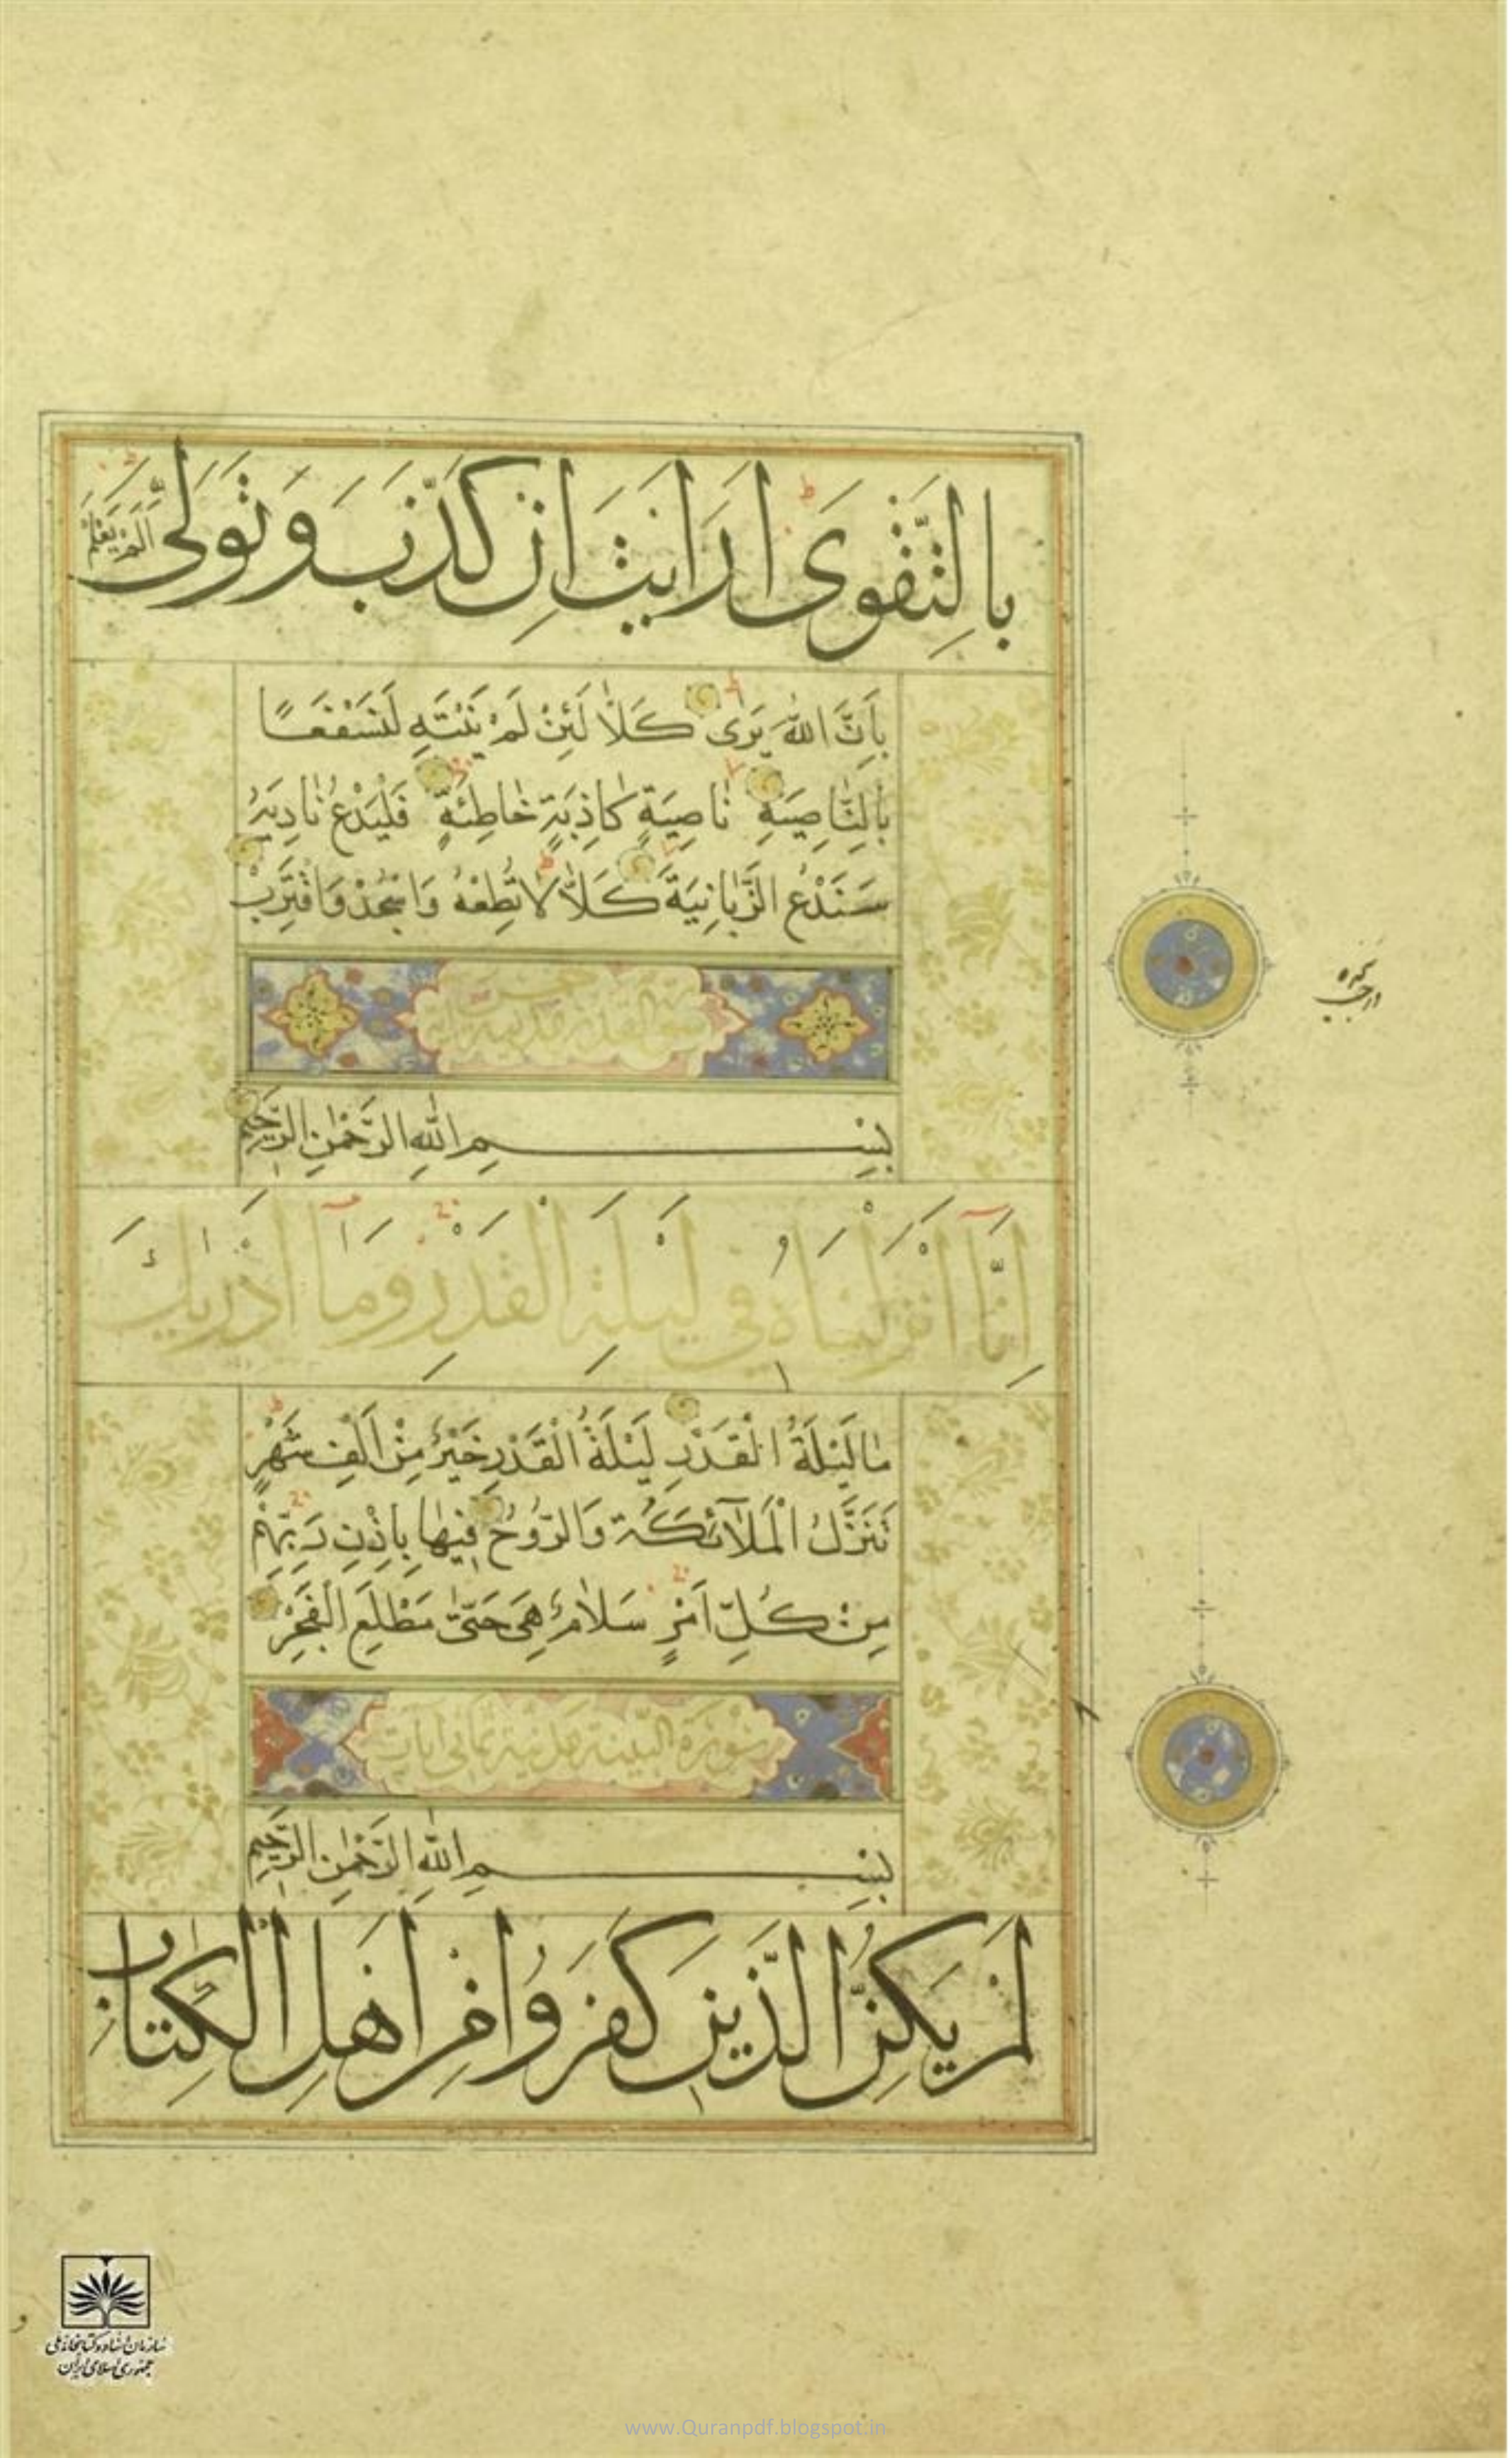 بِالتَّقْوَى اَرَاَيْتَ اِنْ كَذَّبَ وَتَوَلّٰى اَلَمْ يَعْلَمْ
بِاَنَّ اللّٰهَ يَرٰى كَلَّا لَئِنْ لَمْ يَنْتَهِ لَنَسْفَعًا
بِالنَّاصِيَةِ نَاصِيَةٍ كَاذِبَةٍ خَاطِئَةٍ فَلْيَدْعُ نَادِيَهُ
سَنَدْعُ الزَّبَانِيَةَ كَلَّا لَا تُطِعْهُ وَاسْجُدْ وَاقْتَرِبْ
سورة القدر
بِسْمِ اللّٰهِ الرَّحْمٰنِ الرَّحِيمِ
اِنَّا اَنْزَلْنَاهُ فِي لَيْلَةِ الْقَدْرِ وَمَا اَدْرٰيكَ
مَا لَيْلَةُ الْقَدْرِ لَيْلَةُ الْقَدْرِ خَيْرٌ مِنْ اَلْفِ شَهْرٍ
تَنَزَّلُ الْمَلٰٓائِكَةُ وَالرُّوحُ فِيهَا بِاِذْنِ رَبِّهِمْ
مِنْ كُلِّ اَمْرٍ سَلَامٌ هِيَ حَتّٰى مَطْلَعِ الْفَجْرِ
سُورَةُ الْبَيِّنَةِ مَدَنِيَّة ثماني آيات
بِسْمِ اللّٰهِ الرَّحْمٰنِ الرَّحِيمِ
لَمْ يَكُنِ الَّذِينَ كَفَرُوا مِنْ اَهْلِ الْكِتَابِ
سازمان اسناد و کتابخانه ملی
جمهوری اسلامی ایران
www.Quranpdf.blogspot.in